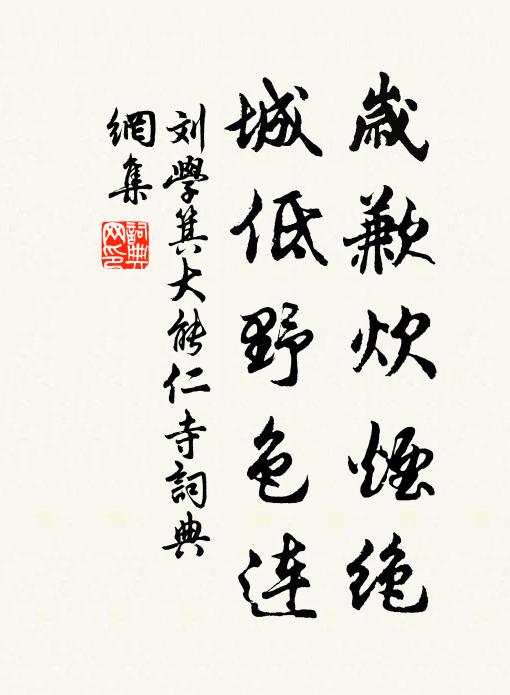 歲歉炊煙绝
城低野色連
刘學箕大能仁寺詞典
網集
詞典
网印